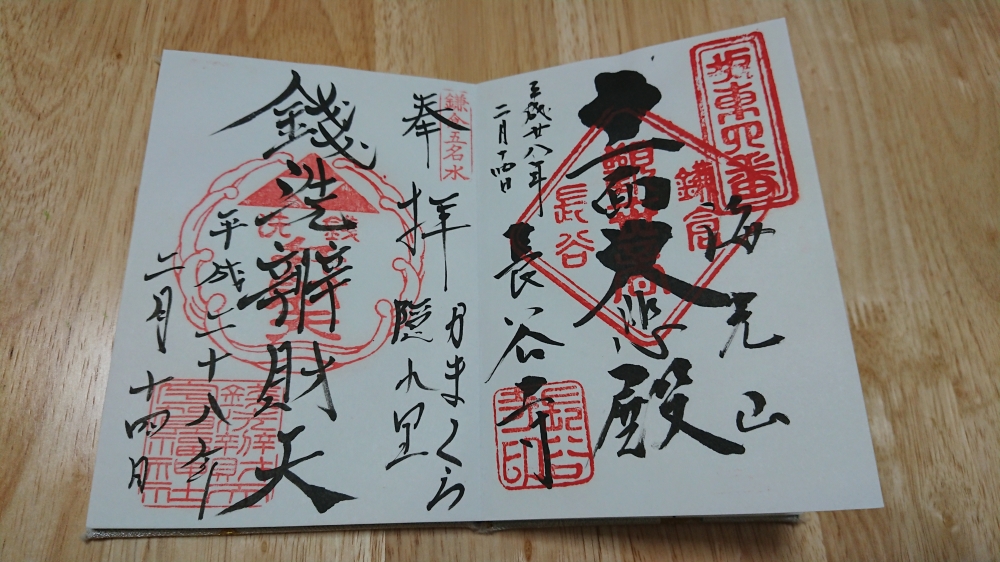 坂東四番
海光山
鎌倉
長谷
十一面大悲殿
平成廿八年
二月十四日
長谷寺
鎌倉五名水
奉拝
かまくら
隠れ里
銭洗
銭洗辨財天
平成二十八年
二月十四日